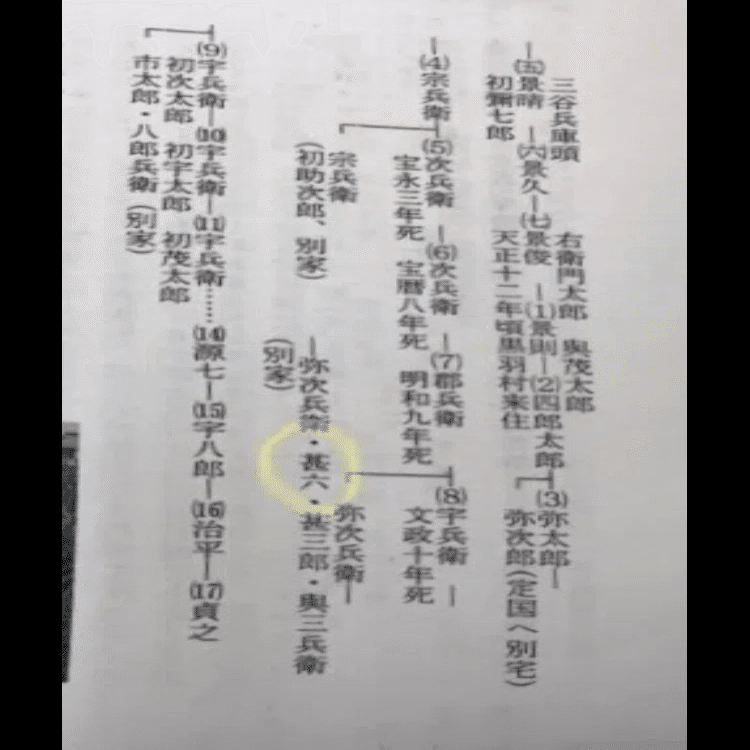 三谷兵庫頭　右衛門太郎　與茂太郎
―(五)景晴―(六)景久―(七)景俊―(1)景則―(2)四郎太郎―(3)弥太郎―
初彌七郎　天正十二年頃黒羽村来住　弥次郎(定国へ別宅)
―(4)宗兵衛―(5)次兵衛―(6)次兵衛―(7)郡兵衛―(8)宇兵衛―
宝永三年死　宝暦八年死　明和九年死　文政十年死
宗兵衛　弥次兵衛―
(初助次郎、別家)
―弥次兵衛・甚六・甚三郎・與三兵衛
(別家)
(9)宇兵衛―(10)宇兵衛―(11)宇兵衛……(14)源七―(15)宇八郎―(16)治平―(17)貞之
初次太郎　初宇太郎　初茂太郎
市太郎・八郎兵衛(別家)